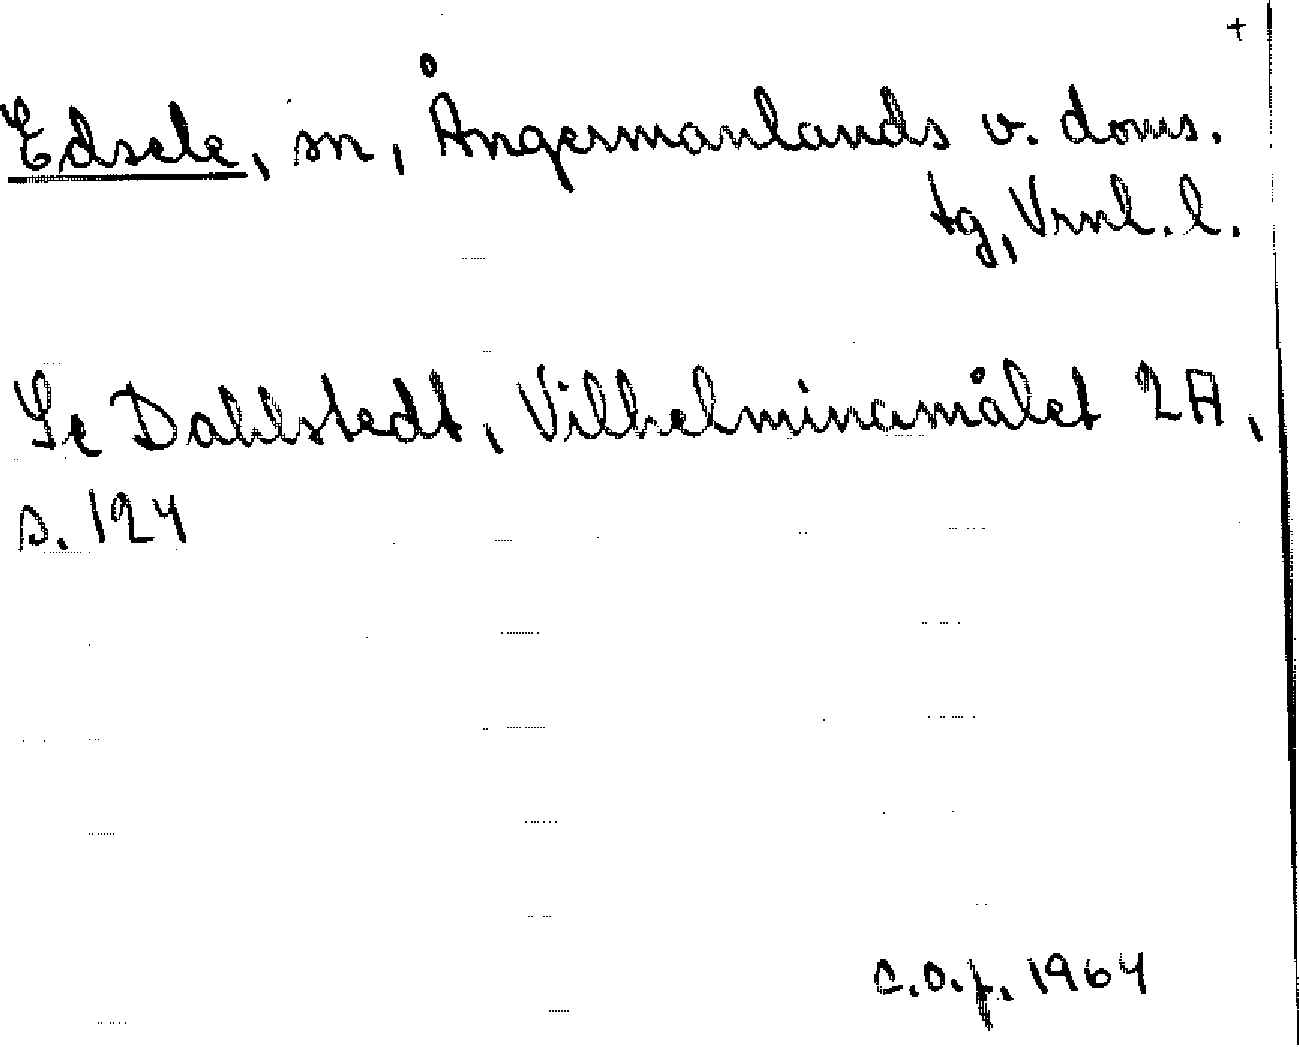 +
Edsele, sn, Ångermanlands v. doms.
tg, Vrnl. l.
Se Dahlstedt, Vilhelminamålet 2A,
s. 124
C.O.f. 1964